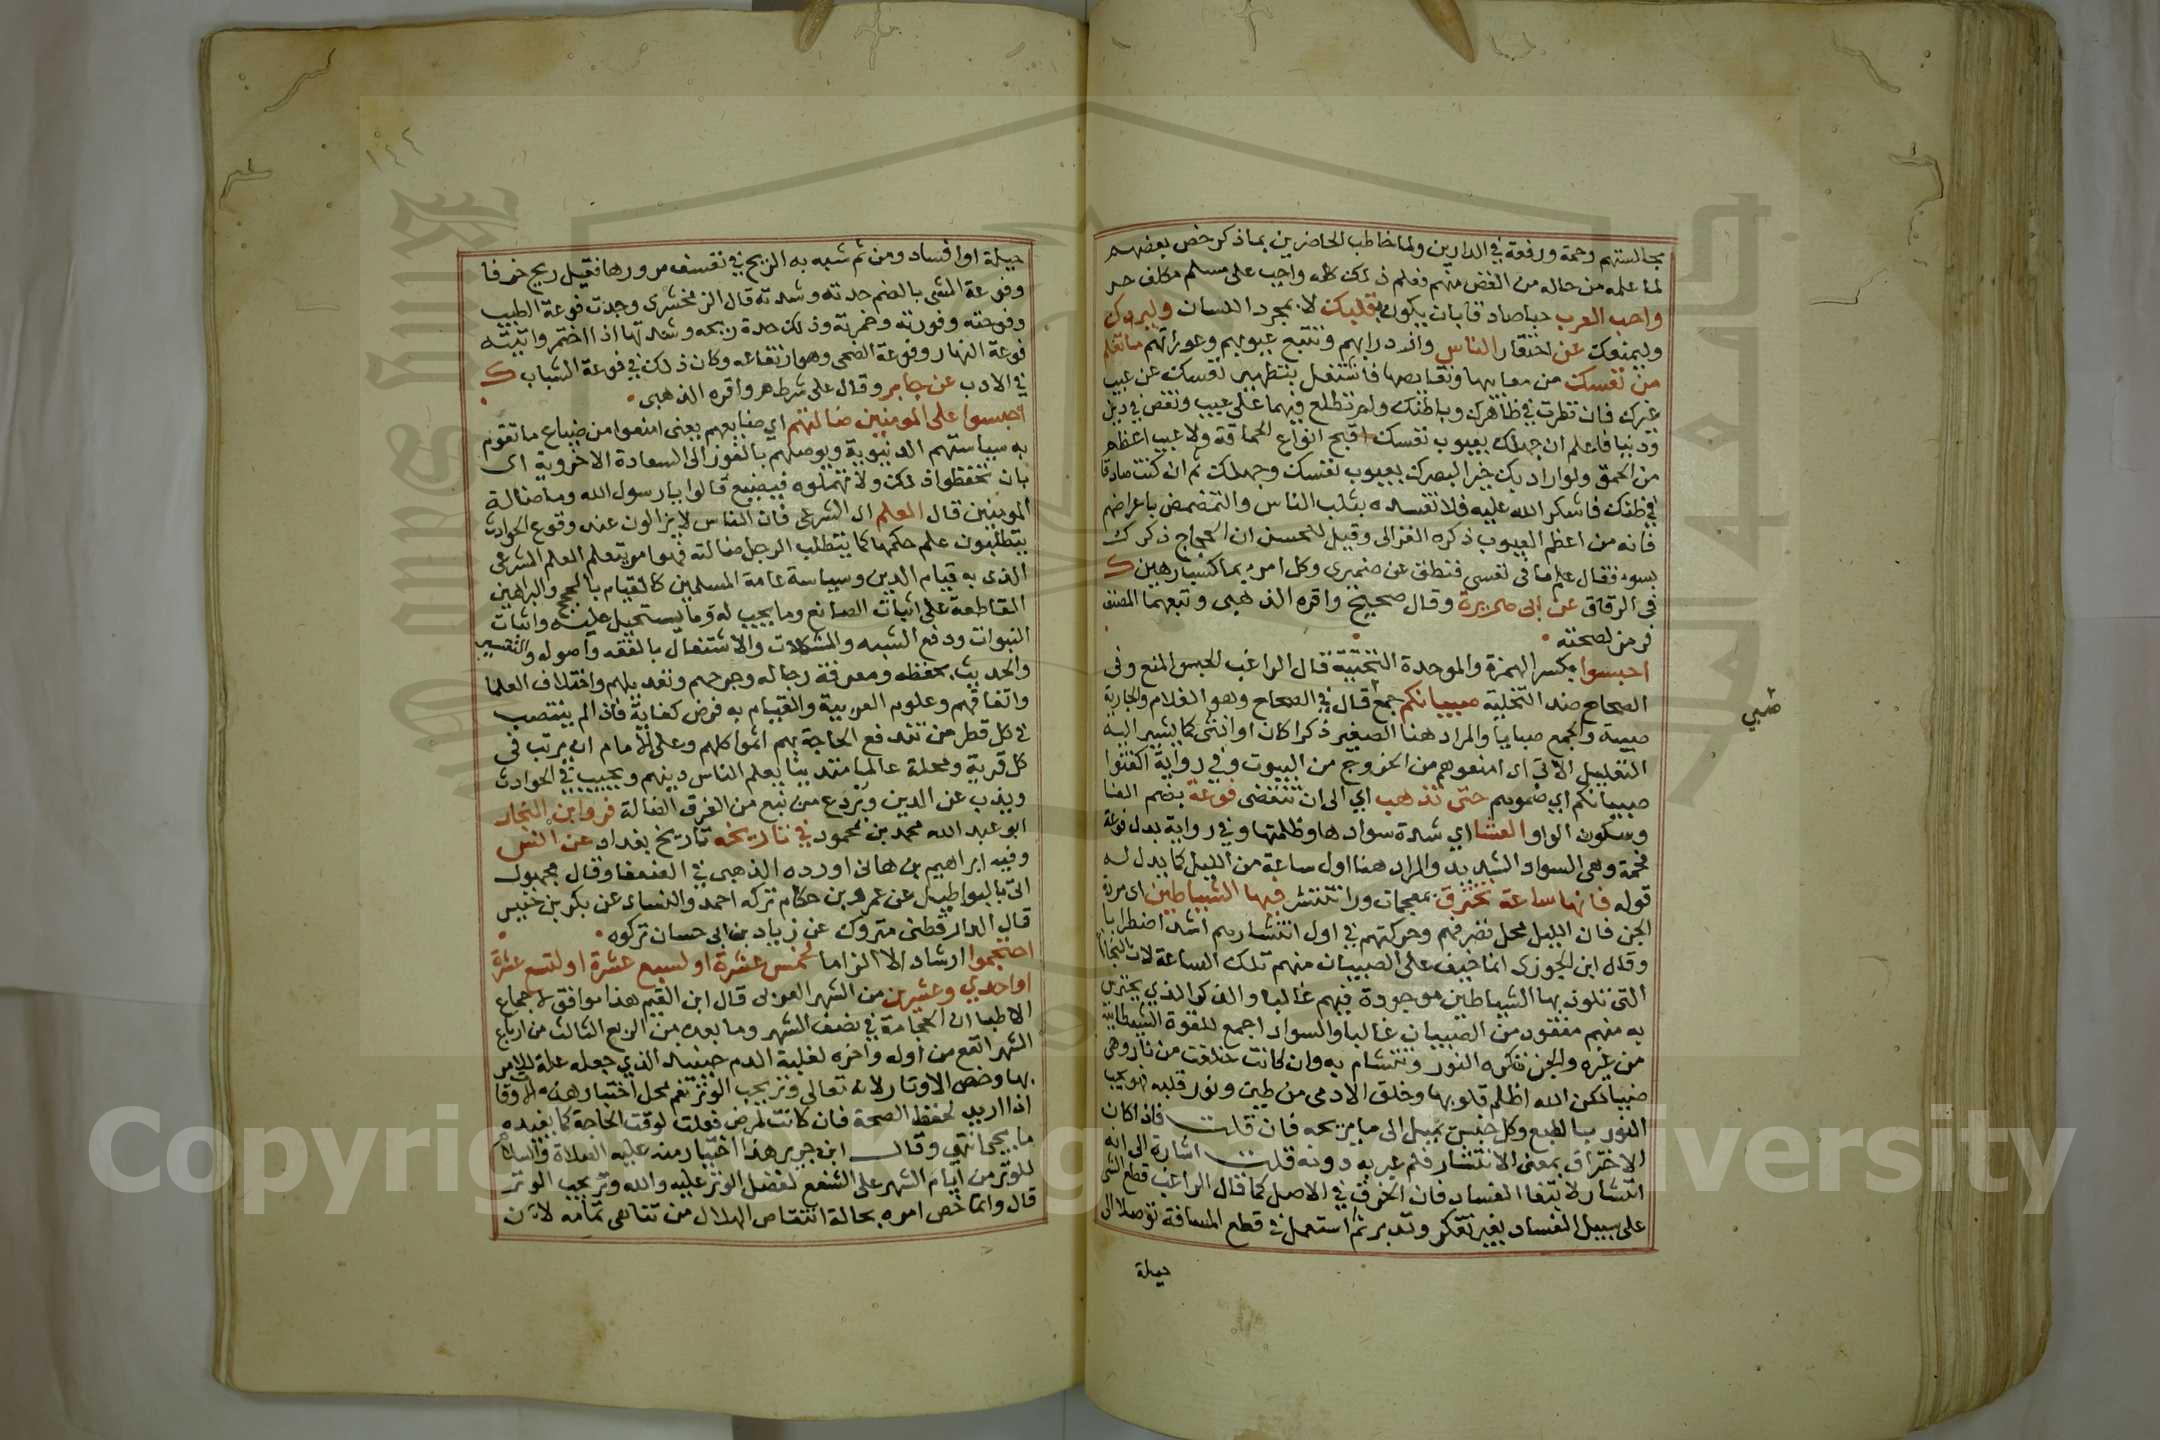 مجالستهم رحمة ورفعة في الدارين ولما خاطب الحاضرين بما ذكر خص بعضهم
لما علمه من حاله من الغض منهم فعلم ذلك كله واجب على مسلم مكلف حر
واحب العرب حبا صادقا بان يكون بقلبك لا بمجرد اللسان وليردك
وليمنعك عن احتقار الناس وازدرايهم وتتبع عيوبهم وعوراتهم ما تعلم
من نفسك من معايبها ونقايصها فاشتغل بتطهير نفسك عن عيب
غيرك فان نظرت في ظاهرك وباطنك ولم تطلع فيهما على عيب ونقص في دين
ودنيا فاعلم ان جهلك بعيوب نفسك اقبح انواع الحماقة ولا عيب اعظم
من الحمق ولو اراد بك خيرا لبصرك بعيوب نفسك وجهلك ثم ان كنت صادقا
في ظنك فاشكر الله عليه فلا تفسده بثلب الناس والتمضمض باعراضهم
فانه من اعظم العيوب ذكره الغزالى وقيل للحسن ان الحجاج ذكرك
بسوء فقال علم ما فى نفسي فنطق عن ضميرى وكل امرء بما كسب رهين ك
فى الرقاق عن ابى هريرة وقال صحيح واقره الذهبى وتبعهما المصنف
فرمز لصحته
احبسوا بكسر الهمزة والموحدة التحتية قال الراغب الحبس المنع وفى
الصحاح ضد التخلية صبيانكم جمع قال في الصحاح وهو الغلام والجارية
صبي
صبية والجمع صبايا والمراد هنا الصغير ذكرا كان او انثى كما يشير اليه
التعليل الاتى اى امنعوهم من الخروج من البيوت وفي رواية اكفتوا
صبيانكم اي ضموهم حتى تذهب اي الى ان تنقضى فوعة بضم الفا
وسكون الواو العشا اي شدة سوادها وظلمتها وفي رواية بدل فوعة
فحمة وهى السواد الشديد والمراد هنا اول ساعة من الليل كما يدل له
قوله فانها ساعة تخترق بمعجمات ورا تنتشر فيها الشياطين اى مردة
الجن فان الليل محل تصرفهم وحركتهم في اول انتشارهم اشد اضطرابا
وقال ابن الجوزى انما خيف على الصبيان منهم تلك الساعة لان النجاسة
التى تلوذ بها الشياطين موجودة فيهم غالبا والذكر الذي يحترس
به منهم مفقود من الصبيان غالبا والسواد اجمع للقوة الشيطانية
من غيره والجن تكره النور وتتشام به وان كانت خلقت من نار وهى
ضيا لكن الله اظلم قلوبها وخلق الادمى من طين ونور قلبه فهو يحب
النور بالطبع وكل جنس يميل الى ما يريحه فان قلت فاذا كان
الاختراق بمعنى الانتشار فلم عبر به دونه قلت اشارة الى انه
انتشار لابتغا الفساد فان الخرق في الاصل كما قال الراغب قطع الشى
على سبيل الفساد بغير تفكر وتدبر ثم استعمل في قطع المسافة توصلا الى
حيلة
حيلة او افساد ومن ثم شبه به الريح في تعسف مرورها فقيل ريح خرقا
وفوعة الشى بالضم حدته وشدته قال الزمخشرى وجدت فوعة الطيب
وفوحته وفورته وخمرته وذلك حدة ريحه وشدتها اذا اختمر واتيته
فوعة النهار وفوعة الضحى وهو ارتفاعه وكان ذلك في فوعة الشباب ك
في الادب عن جابر وقال على شرطهر واقره الذهبى
احبسوا على المومنين ضالتهم اي ضايعهم يعنى امنعوا من ضياع ما تقوم
به سياستهم الدنيوية ويوصلهم بالفوز الى السعادة الاخروية اى
بان تحفظوا ذلك ولا تهملوه فيضيع قالوا يا رسول الله وما ضالة
المومنين قال العلم اى الشرعى فان الناس لا يزالون عند وقوع الحوادث
يتطلبون علم حكمها كما يتطلب الرجل ضالته فهو امر بتعلم العلم الشرعى
الذى به قيام الدين وسياسة عامة المسلمين كالقيام بالحجج والبراهين
القاطعة على اثبات الصانع وما يجب له وما يستحيل عليه واثبات
النبوات ودفع الشبه والمشكلات والاشتغال بالفقه واصوله والتفسير
والحديث بحفظه ومعرفة رجاله وجرحهم وتعديلهم واختلاف العلما
واتفاقهم وعلوم العربية والقيام به فرض كفاية فاذا لم ينتصب
في كل قطر من تندفع الحاجة بهم اثموا كلهم وعلى الامام ان يرتب فى
كل قرية ومحلة عالما متدينا يعلم الناس دينهم ويجيب في الحوادث
ويذب عن الدين ويردع من نبع من الفرق الضالة فر وابن النجار
ابو عبد الله محمد بن محمود في تاريخه تاريخ بغداد عن انس
وفيه ابراهيم بن هانى اورده الذهبى في الضعفا وقال مجهول
اتى بالبواطيل عن عمرو بن حكام تركه احمد والنساى عن بكر بن خنيس
قال الدارقطنى متروك عن زياد بن ابى حسان تركوه
احتجموا ارشادا لا الزاما لخمس عشرة او لسبع عشرة او لتسع عشرة
او احدي وعشرين من الشهر العربى قال ابن القيم هذا موافق لاجماع
الاطبا ان الحجامة في نصف الشهر وما بعده من الربع الثالث من ارباع
الشهر انفع من اوله واخره لغلبة الدم حينيذ الذي جعله علة للامر
بها وخص الاوتار لانه تعالى وتر يحب الوتر نعم محل اختيار هذه الاوقات
اذا اريد لحفظ الصحة فان كانت لمرض فعلت لوقت الحاجة كما يفيده
ما يجى انتهى وقال ابن جرير هذا اختيار منه عليه الصلاة والسلام
للوتر من ايام الشهر على الشفع لفضل الوتر عليه والله وتر يحب الوتر
قال وانما خص امره بحالة انتقاص الهلال من تناهى تمامه لان